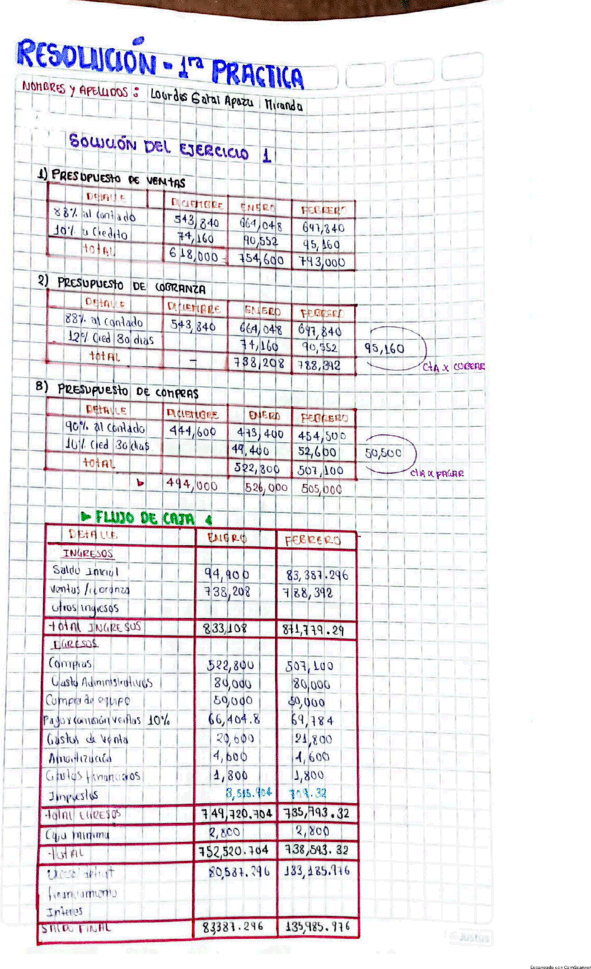 RESOLUCIÓN - 1ra PRACTICA
NOMBRES Y APELLIDOS : Lourdes Apaza Miranda
SOLUCIÓN DEL EJERCICIO 1
1) PRESUPUESTO DE VENTAS
DETALLE DICIEMBRE ENERO FEBRERO
88% al contado 543,840 664,048 697,840
10% a Credito 74,160 90,552 95,160
total 618,000 754,600 793,000
2) PRESUPUESTO DE COBRANZA
DETALLE DICIEMBRE ENERO FEBRERO
88% al contado 543,840 664,048 697,840
12% Cred 30 dias 74,160 90,552 95,160
total - 738,208 788,392 CTA X COBRAR
3) PRESUPUESTO DE COMPRAS
DETALLE DICIEMBRE ENERO FEBRERO
90% al contado 444,600 473,400 454,500
10% Cred 30 dias 49,400 52,600 50,500
total 522,800 507,100 CTA X PAGAR
494,000 526,000 505,000
FLUJO DE CAJA
DETALLE ENERO FEBRERO
INGRESOS
Saldo Inicial 94,900 83,387.296
Ventas / cobranza 738,208 788,392
otros ingresos
total INGRESOS 833,108 871,779.29
EGRESOS
Compras 522,800 507,100
Gasto Administrativos 80,000 80,000
Compra de equipo 50,000 50,000
Pago x comisión ventas 10% 66,404.8 69,784
Gastos de venta 20,600 21,800
Amortización 4,600 4,600
Gastos financieros 1,800 1,800
Impuestos 3,515.904
total EGRESOS 749,720.704 735,793.32
Caja minima 2,800 2,800
total 752,520.704 738,593.32
80,587.296 133,185.976
financiamiento
Interes
SALDO FINAL 83387.296 135,985.976
Justus
Escaneado con CamScanner